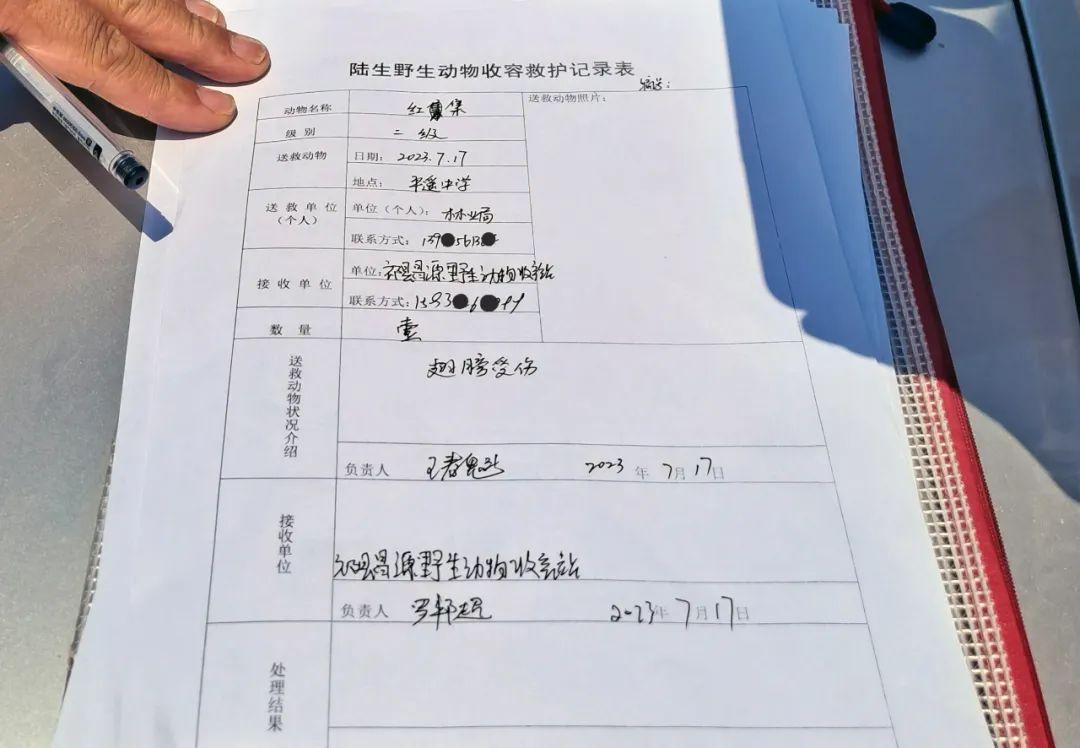 陆生野生动物收容救护记录表
动物名称 红隼
送救动物照片：
级别 二级
送救动物 日期：2023.7.17
地点：平遥中学
送救单位（个人） 单位（个人）：林业局
联系方式：139 5613
接收单位 单位：祁县昌源野生动物收容站
联系方式：1593 6
数量 壹
送救动物状况介绍 翅膀受伤
负责人 2023年7月17日
接收单位 祁县昌源野生动物收容站
负责人 2023年7月17日
处理结果